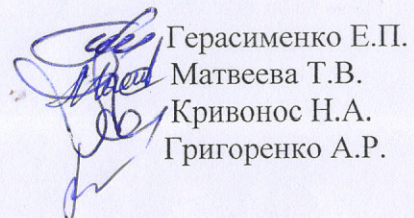 Герасименко Е.П.
Матвеева Т.В.
Кривонос Н.А.
Григоренко А.Р.